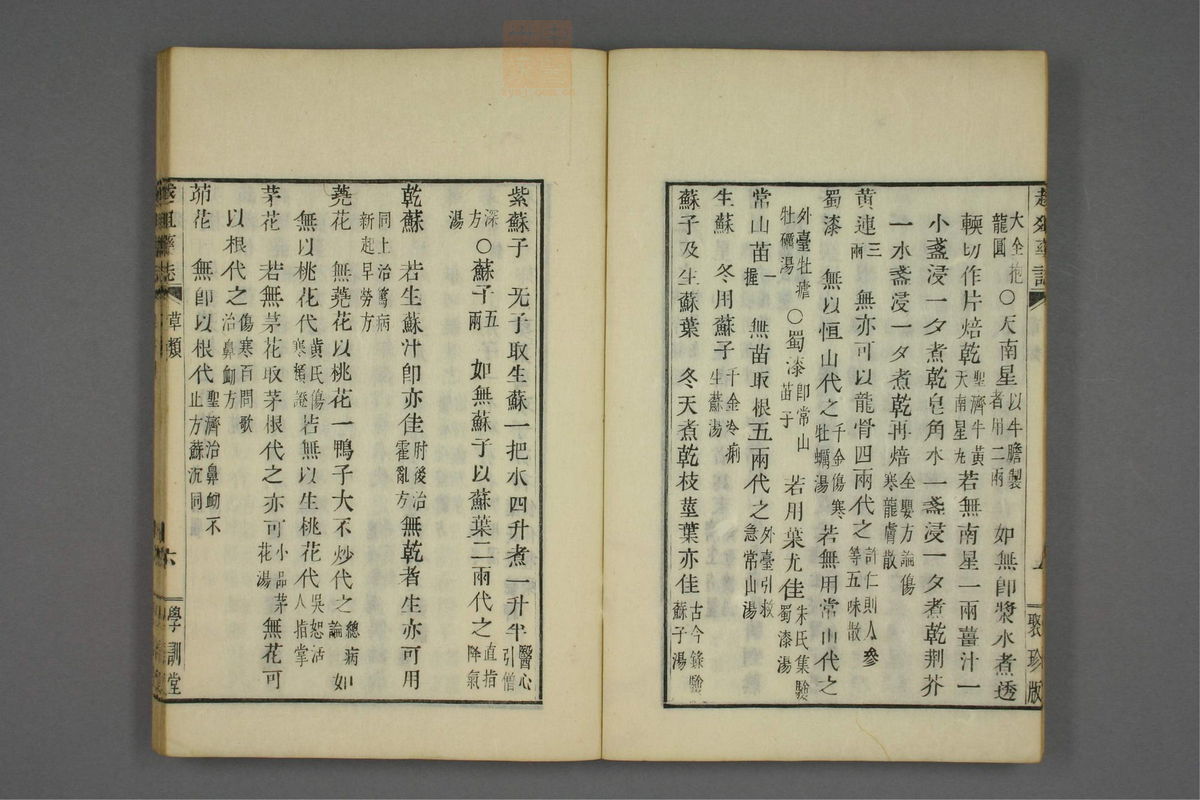 大全抱龍圓○天南星以牛膽製者用二兩 如無卽漿水煮透
輭切作片焙乾聖濟牛黃天南星丸若無南星一兩薑汁一
小盞浸一夕煮乾皂角水一盞浸一夕煮乾荆芥
一水盞浸一夕煮乾再焙全嬰方論傷寒龍膚散
黃連三兩 無亦可以龍骨四兩代之許仁則人參等五味散
蜀漆 無以恒山代之千金傷寒牡蠣湯若無用常山代之
外臺牡瘧牡礪湯○蜀漆卽常山苗子 若用葉尤佳朱氏集驗蜀漆湯
常山苗一握 無苗取根五兩代之外臺引救急常山湯
生蘇 冬用蘇子千金冷痢生蘇湯
蘇子及生蘇葉 冬天煮乾枝莖葉亦佳古今錄驗蘇子湯
聚珍版
紫蘇子 无子取生蘇一把水四升煮一升半醫心引僧
深方○蘇子五兩 如無蘇子以蘇葉二兩代之直指降氣
湯
乾蘇 若生蘇汁卽亦佳肘後治霍亂方無乾者生亦可用
同上治篤病新起早勞方
蕘花 無蕘花以桃花一鴨子大不炒代之總病論如
無以桃花代黃氏傷寒類證若無以生桃花代吳恕活人指掌
茅花 若無茅花取茅根代之亦可小品茅花湯無花可
以根代之傷寒百問歌治鼻衂方
茆花 無卽以根代聖濟治鼻衂不止方蘇沉同
草類
六
學訓堂